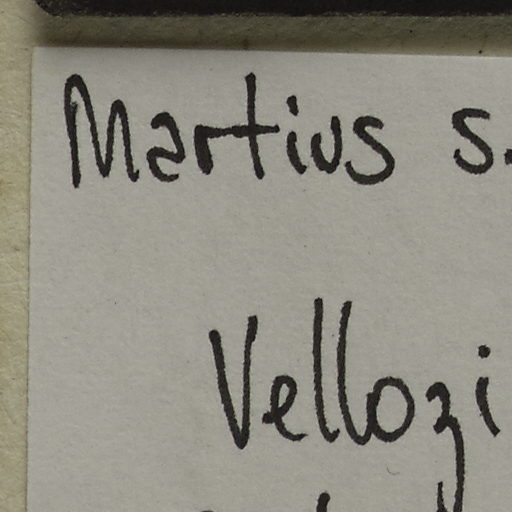 Martius s.
Vellozi